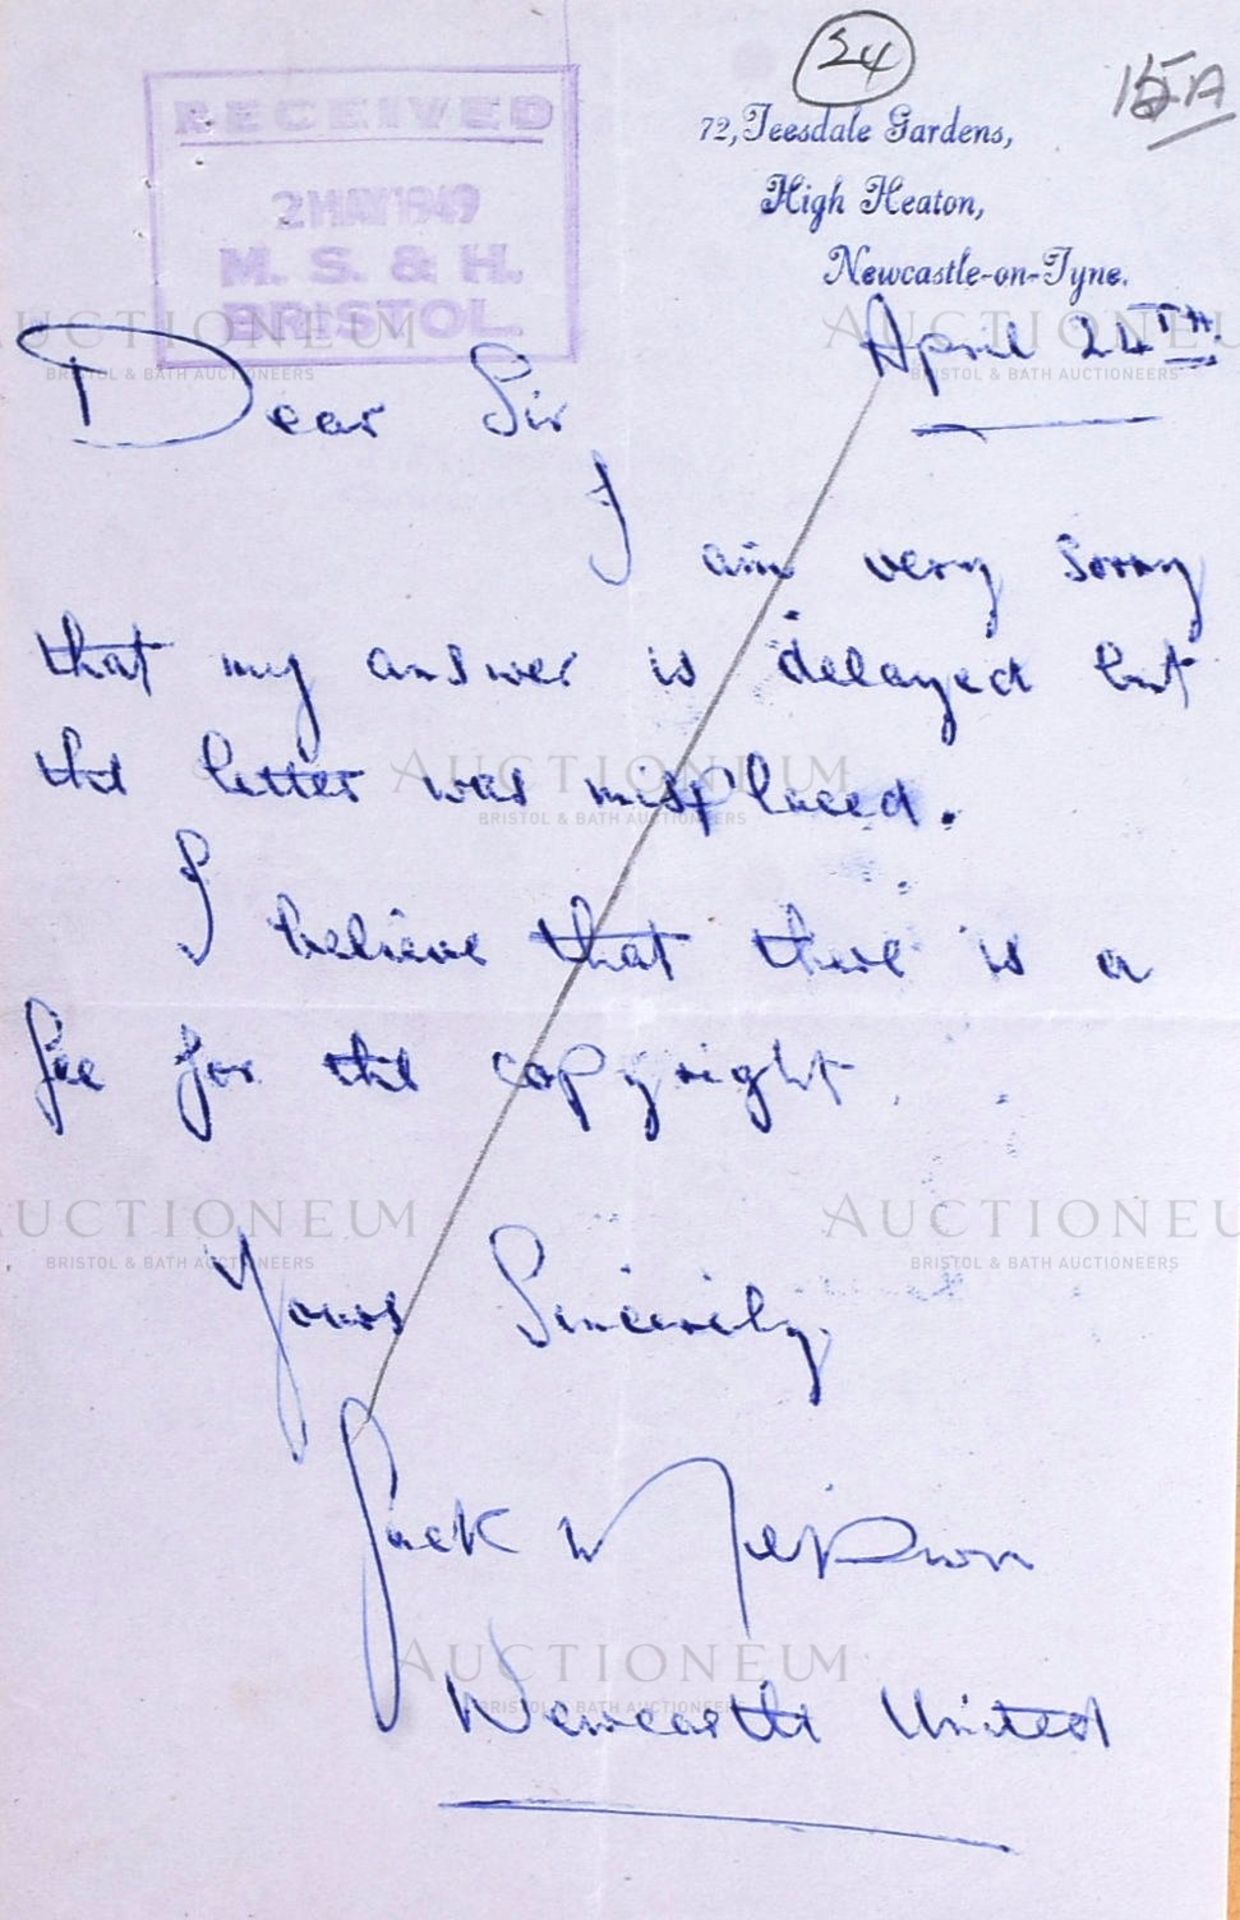 24
15A
RECEIVED
2 MAY 1949
M. S. & H.
BRISTOL.
72, Teesdale Gardens,
High Heaton,
Newcastle-on-Tyne.
April 24TH.
Dear Sir,
I am very sorry
that my answer is delayed but
the letter was misplaced.
I believe that there is a
fee for the copyright.
Yours Sincerely,
Jack W
Newcastle United
AUCTIONEUM
BRISTOL & BATH AUCTIONEERS
AUCTIONEUM
BRISTOL & BATH AUCTIONEERS
AUCTIONEUM
BRISTOL & BATH AUCTIONEERS
AUCTIONEUM
BRISTOL & BATH AUCTIONEERS
AUCTIONEUM
BRISTOL & BATH AUCTIONEERS
AUCTIONEUM
BRISTOL & BATH AUCTIONEERS